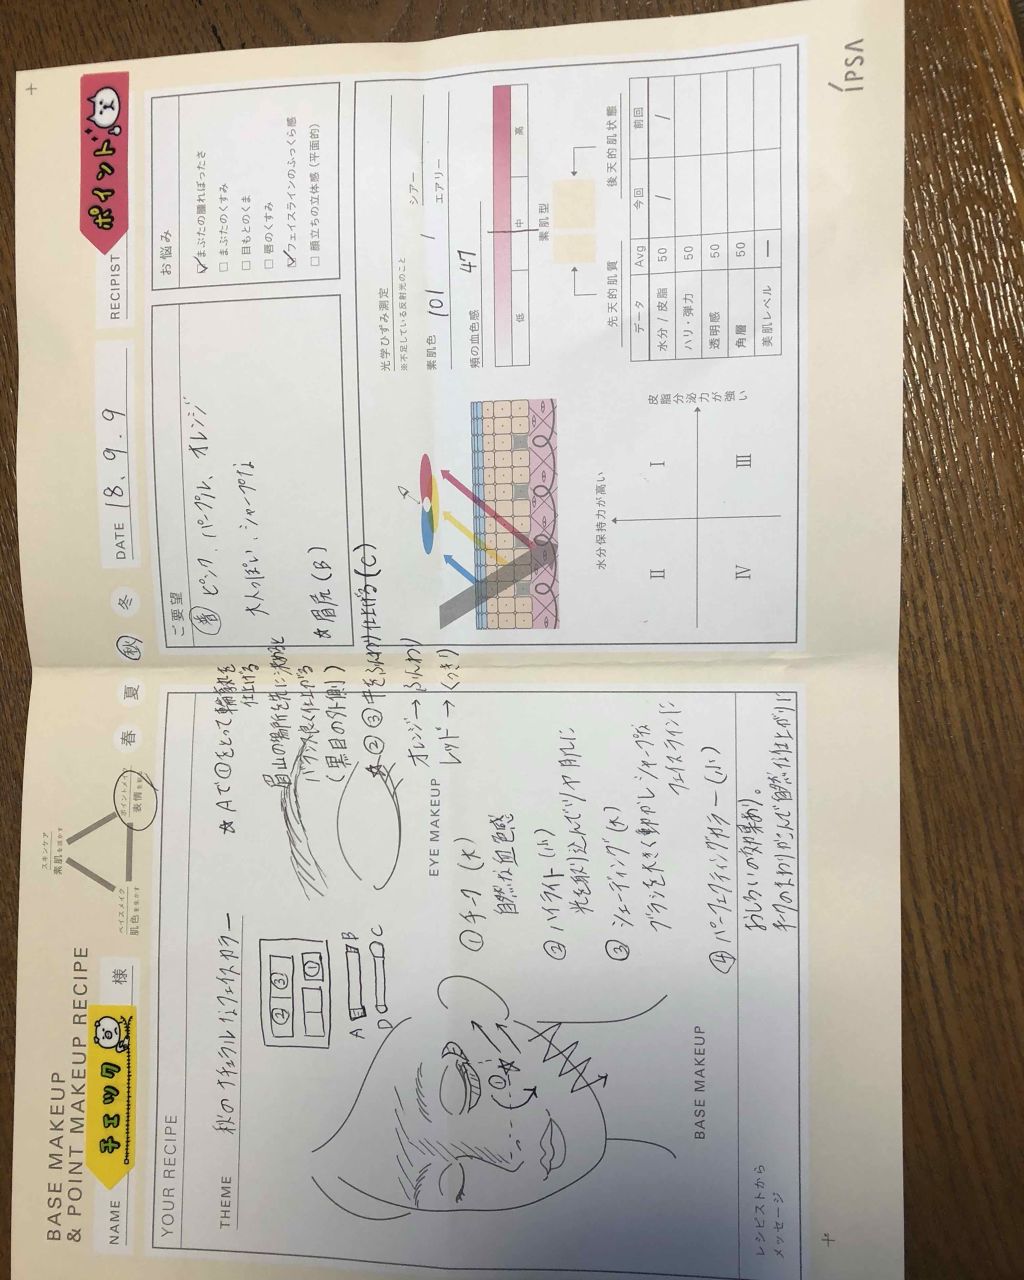 BASE MAKEUP
& POINT MAKEUP RECIPE
スキンケア
素肌を活かす
ベイスメイク
肌色を生かす
ポイントメイク
表情を
春 夏 秋 冬
NAME
チェック
様
DATE 18.9.9
RECIPIST
ポイント!
YOUR RECIPE
THEME 秋のナチュラルなフェイスカラー
② ③
①
A B
D C
☆Aで①をとって輪郭を
仕上げる
眉山の場所を先に決めると
バランス良く仕上がる
(黒目の外側)
☆眉尻(B)
☆②③中をふんわり仕上げる(C)
オレンジ→ふんわり
レッド→くっきり
EYE MAKEUP
①
①チーク(大)
自然な血色感
②ハイライト(小)
光を取り込んでツヤ肌に
③シェーディング(大)
ブラシを大きく動かしシャープな
フェイスラインに
④パーフェクティングカラー(小)
おしろいの効果あり。
チークのまわりがふんで自然な仕上がりに
BASE MAKEUP
レシピストから
メッセージ
ご要望
春 ピンク、パープル、オレンジ
大人っぽい、シャープな
お悩み
まぶたの腫れぼったさ
まぶたのくすみ
目もとのくま
唇のくすみ
フェイスラインのふっくら感
顔立ちの立体感(平面的)
光学ひずみ測定
※不足している反射光のこと
素肌色 101 / シアー
エアリー
頬の血色感 47
低 中 高
素肌型
先天的肌質 後天的肌状態
データ Avg 今回 前回
水分/皮脂 50 / /
ハリ・弾力 50
透明感 50
角層 50
美肌レベル —
水分保持力が高い
皮脂分泌力が強い
II I
IV III
IPSA